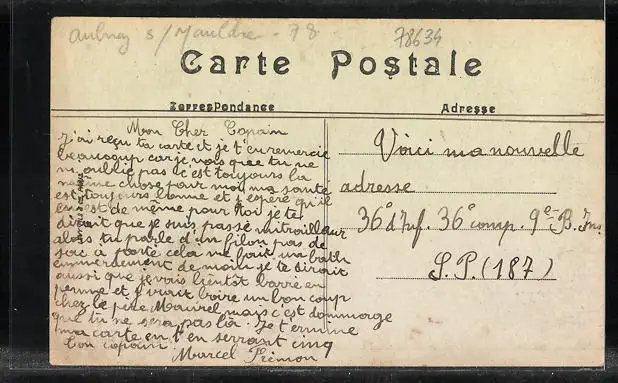 Aulnay s/Mauldre - 78
78634
Carte Postale
Correspondance
Adresse
Mon Cher Copain
J'ai reçu ta carte et je t'en remercie
beaucoup car je vois que tu ne
m'oublie pas c'est toujours la
même chose pour moi ma santé
est toujours bonne et j'espère qu'il
en est de même pour toi je te
dirait que je suis passé mitrailleur
alors tu parle d'un filon pas de
sac à porté cela me fait un
emmerdement de moin je te dirait
aussi que je vais bientôt barré en
perme et j'irait boire un bon coup
chez le père Maurel mais c'est dommage
que tu ne sera pas là. Je termine
ma carte en t'en serrant cinq
Ton copain
Marcel
Voici ma nouvelle
adresse
36 d'Inf. 36 comp. 9e B. Ins
S.P. (187)